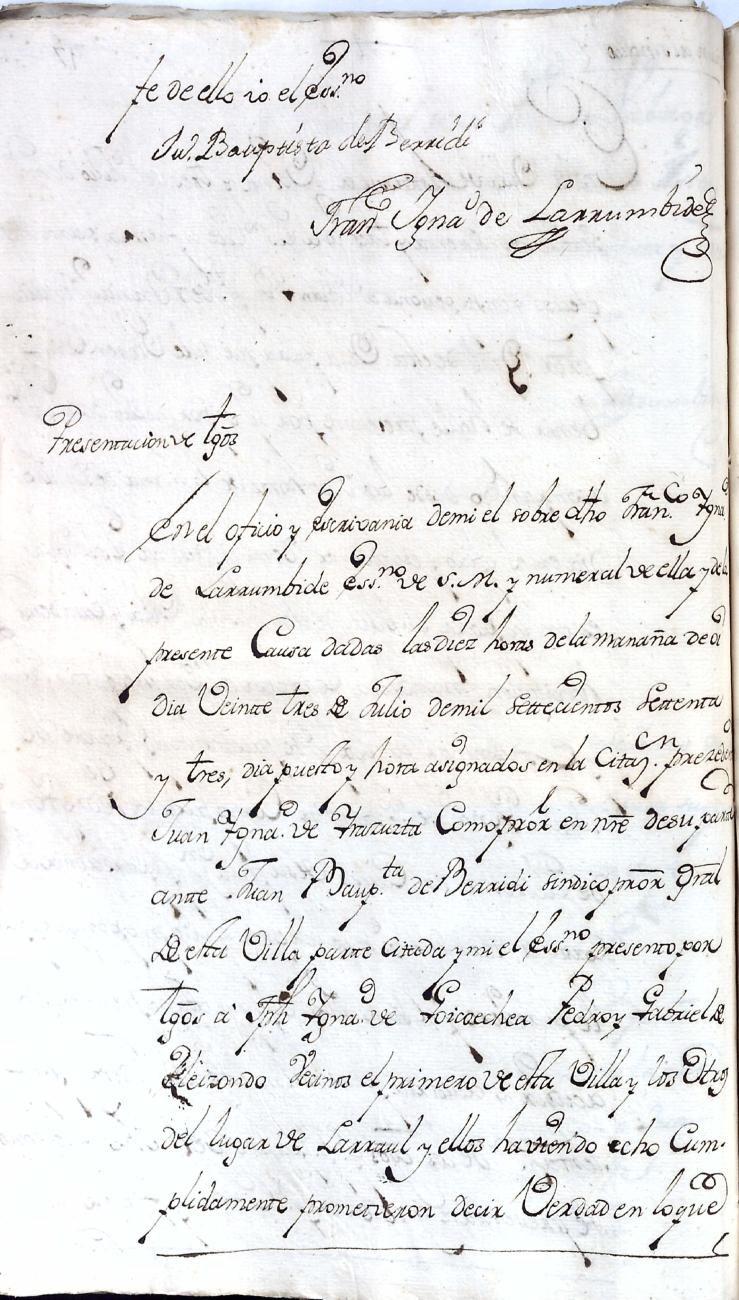 fe de ello io el Essno
Jun. Bauptista de Berridi
Franco Ignao de Larrumbide
Presentacion de tgos
En el oficio y escrivania de mi el sobre dho Franco Igna
de Larrumbide Essno de S. M. y numeral de ella y de la
presente Causa dadas las diez horas de la manaña de oi
dia Veinte tres de Julio de mil settecientos settenta
y tres, dia puesto y hora asignados en la Citazn. prezedte
Juan Ignao de Irazuzta Como pror en nre de su parte
ante Juan Baupta de Berridi sindico pror Gral
de esta Villa parte Citada y mi el Essno presento por
tgos a Jph Ignao de Goicoechea Pedro y Gabriel de
Eleizondo vecinos el primero de esta Villa y los Otros
del lugar de Larraul y ellos haviendo echo Cum-
plidamente prometieron decir Verdad en lo que